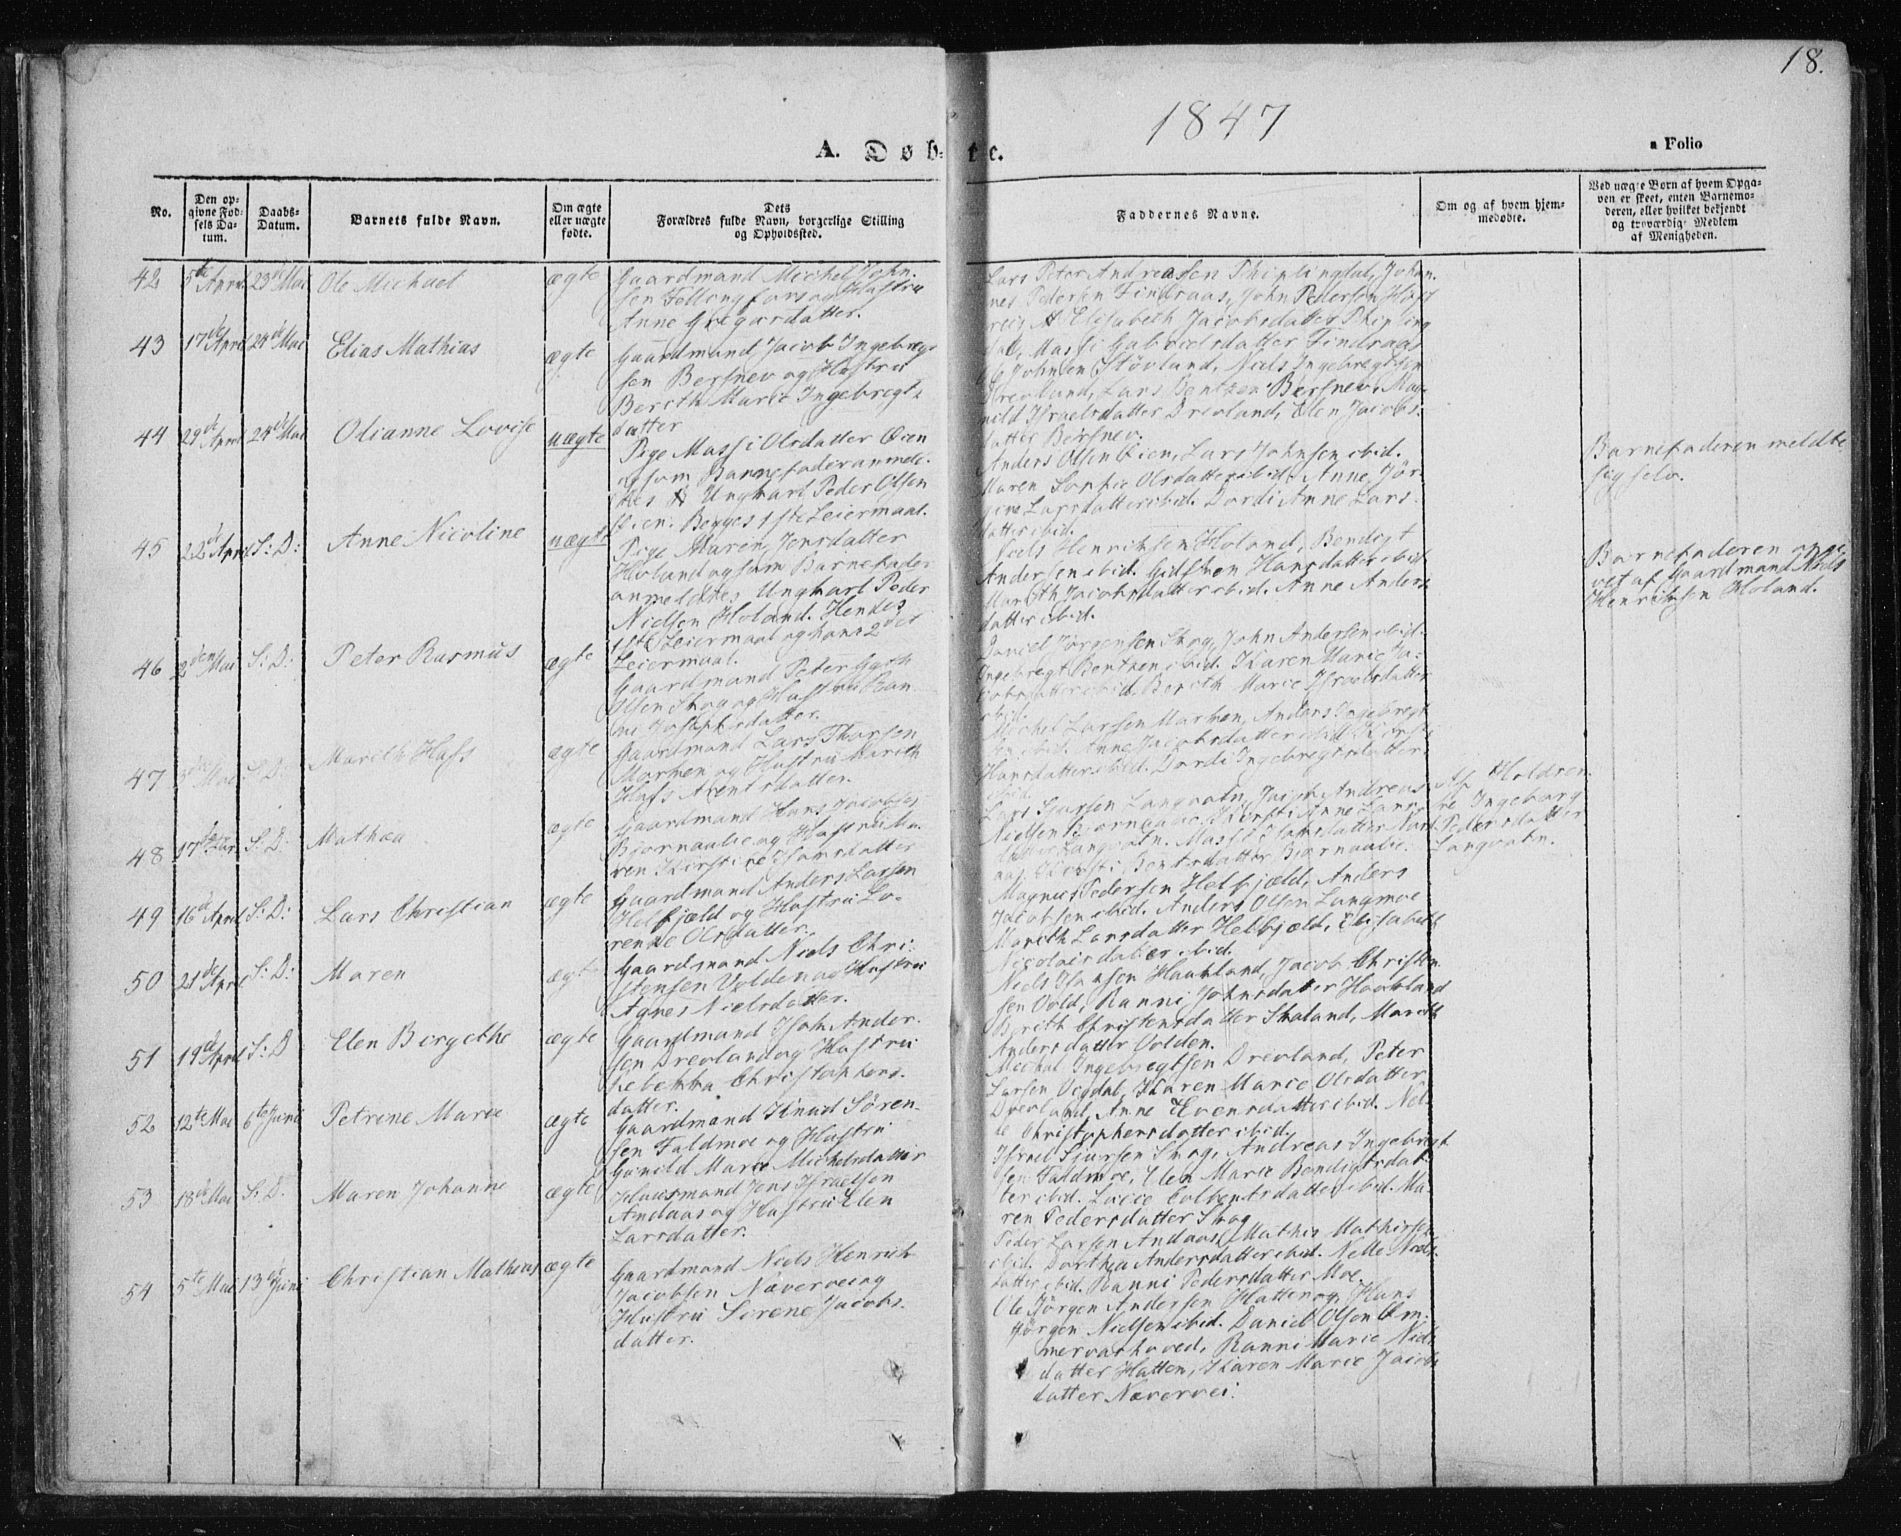 18.
1847
A. Døb-te.
a Folio
No.
Den op-
givne Fød-
sels Da-
tum.
Daabs-
Datum.
Barnets fulde Navn.
Om ægte
eller uægte
fødte.
Dets
Forældres fulde Navn, borgerlige Stilling
og Opholdssted.
Faddernes Navne.
Om og af hvem hjem-
medøbte.
Ved uægte Børn af hvem Opga-
ven er skeet, enten Barnemo-
deren, eller hvilket bekjendt
og troværdigt Medlem
af Menigheden.
42 5te April 23de Mai Ole Michael ægte
Gaardmand Michel John-
sen og Hustru
Anne Gregersdatter.
Lars Peter Andreasen Johan-
nes Pedersen Findraas, John Pedersen
Elisabeth Jacobsdatter
Massi Gabrielsdatter Findraas
43 17de April 24de Mai Elias Mathias ægte
Gaardmand Jacob Ingebreg-
sen Bersnev og Hustru
Bereth Marie Ingebregts
datter
Johnsen Støvland, Niels Ingebregtsen
Drevland, Lars Bentsen Bersnev, Mag-
nild Israelsdatter Drevland, Elen Jacobs-
datter Bersnev.
44 29de April 24de Mai Olianne Lovise uægte
Pige Massi Olsdatter Øien
og som Barnefader anmeld-
tes Ungkarl Peder Olsen
Øien. Begges 1ste Leiermaal.
Anders Olsen Øien, Lars Johnsen ibid.
Maren Sophie Olsdatter ibid. Anne Jør-
gine Larsdatter ibid. Dordi Anne Lars-
datter ibid.
Barnefaderen meldte
sig selv.
45 22de April S: D: Anne Nicoline uægte
Pige Maren Jensdatter
Holand og som Barnefader
anmeldtes Ungkarl Peder
Nielsen Holand. Hendes
1ste Leiermaal og hans 2det
Leiermaal.
Niels Henriksen Holand, Bendigt
Andersen ibid. Gidsken Hansdatter ibid
Mareth Jacobsdatter ibid. Anne Anders-
datter ibid.
Barnefaderen opgi-
vet af Gaardmand Niels
Henriksen Holand.
46 2den Mai S: D: Peter Rasmus ægte
Gaardmand Peter
Olsen Skog og Hustru Ran-
ne Josephsdatter.
Daniel Jørgensen Skog, John Andersen ibid.
Ingebregt Bentsen ibid. Karen Marie Ja-
cobsdatter ibid. Bereth Marie Israelsdatter
ibid.
47 Mai S: D: Mareth Hass ægte
Gaardmand Lars Thorsen
Marken og Hustru Mareth
Hass Arentsdatter.
Michel Larsen Marken, Anders Ingebregt-
sen ibid. Anne Jacobsdatter ibid Kirsti
Hansdatter ibid. Dordi Ingebregtsdatter
ibid.
48 17de Mar. S: D: Mathea ægte
Gaardmand Hans Jacobsen
Bjørnaalie og Hustru Ma-
ren Kirstine Hansdatter
Lars Larsen Langvatn, Andreas
Nielsen Bjørnaalie, Kirsti Anne Lars-
datter Langvatn. Massi
Kirsti Bentsdatter Bjørnaalie.
Af Holdren-
ne Ingeborg
Pedersdatter
Langvatn.
49 16de April S: D: Lars Christian ægte
Gaardmand Anders Larsen
Helfjeld og Hustru Lo-
rense Olsdatter.
Magnus Pedersen Helfjæld, Anders
Jacobsen ibid. Anders Olsen Langmoe
Mareth Larsdatter Helfjæld, Elisabeth
Nicolaisdatter ibid.
50 21de April S: D: Maren ægte
Gaardmand Niels Chri-
stensen Volden og Hustru
Agnes Nielsdatter.
Niels Hansen Haavland, Jacob Christen-
sen Vold, Ranni Johnsdatter Haavland
Bereth Christensdatter Skaland, Mareth
Andersdatter Volden.
51 19de April S: D Elen Bergethe ægte
Gaardmand Isak Ander-
sen Drevland og Hustru
Rebekka Christophers-
datter.
Mechal Ingebregtsen Drevland, Peter
Larsen Vegdal, Karen Marie Olsdatter
Drevland, Anne Evensdatter ibid. Nel-
le Christophersdatter ibid.
52 12te Mai 6te Juni Petrene Marie ægte
Gaardmand Knud Søren-
sen Faldmoe og Hustru
Gunild Marie Michelsdatter
Israel Sjursen Skog, Andreas Ingebregt
sen Faldmoe, Elen Marie Bendigtsdat-
ter ibid. Lucie Colbentsdatter ibid. Ma-
ren Pedersdatter Skog
53 18de Mai S: D. Maren Johanne ægte
Huusmand Jens Israelsen
Andaas og Hustru Elen
Larsdatter.
Peder Larsen Andaas, Mathis Mathisen
ibid. Dorthea Andersdatter ibid. Nelle Niels-
datter ibid. Ranni Pedersdatter Moe.
54 5te Mai 13de Juni Christian Mathias ægte
Gaardmand Niels Henrik
Jacobsen Nævervei og
Hustru Serene Jacobs-
datter.
Ole Jørgen Andersen Hatten og Hans
Jørgen Nielsen ibid. Daniel Olsen Em-
mervashoved, Ranni Marie Niels-
datter Hatten, Karen Marie Jacobs
datter Nævervei.